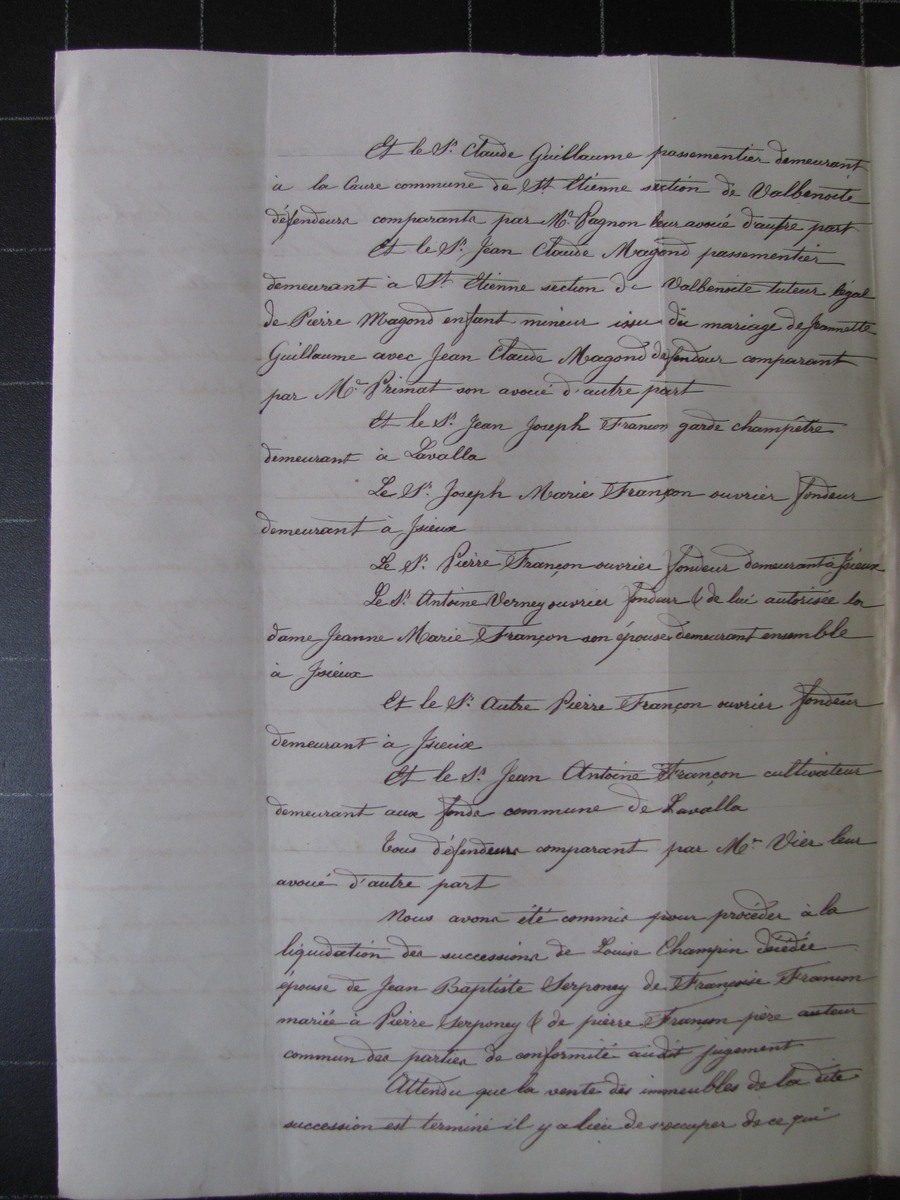 Et le Sr. Claude Guillaume passementier demeurant
à la Caure commune de St Etienne section de Valbenoite
défendeurs comparants par Me. Pagnon leur avoué d'autre part
Et le Sr. Jean Claude Magond passementier
demeurant à St Etienne section de Valbenoite tuteur légal
de Pierre Magond enfant mineur issu du mariage de Jeannette
Guillaume avec Jean Claude Magond défendeur comparant
par Me Primat son avoué d'autre part
Et le Sr. Jean Joseph Françon garde champêtre
demeurant à Lavalla
Le Sr. Joseph Marie Françon ouvrier fondeur
demeurant à Isieux
Le Sr. Pierre Françon ouvrier fondeur demeurant à Isieux
Le Sr. Antoine Verney ouvrier fondeur & de lui autorisée la
dame Jeanne Marie Françon son épouse demeurant ensemble
à Isieux
Et le Sr. autre Pierre Françon ouvrier fondeur
demeurant à Isieux
Et le Sr. Jean Antoine Françon cultivateur
demeurant aux fonds commune de Lavalla
Tous défendeurs comparant par Me Vier leur
avoué d'autre part
Nous avons été commis pour procéder à la
liquidation des successions de Louise Champin décédée
épouse de Jean Baptiste Serponey de Françoise Françon
mariée à Pierre Serponey & de pierre Françon père auteur
commun des parties de conformité audit jugement
Attendu que la vente des immeubles de la dite
succession est terminé il y a lieu de s'occuper de ce qui